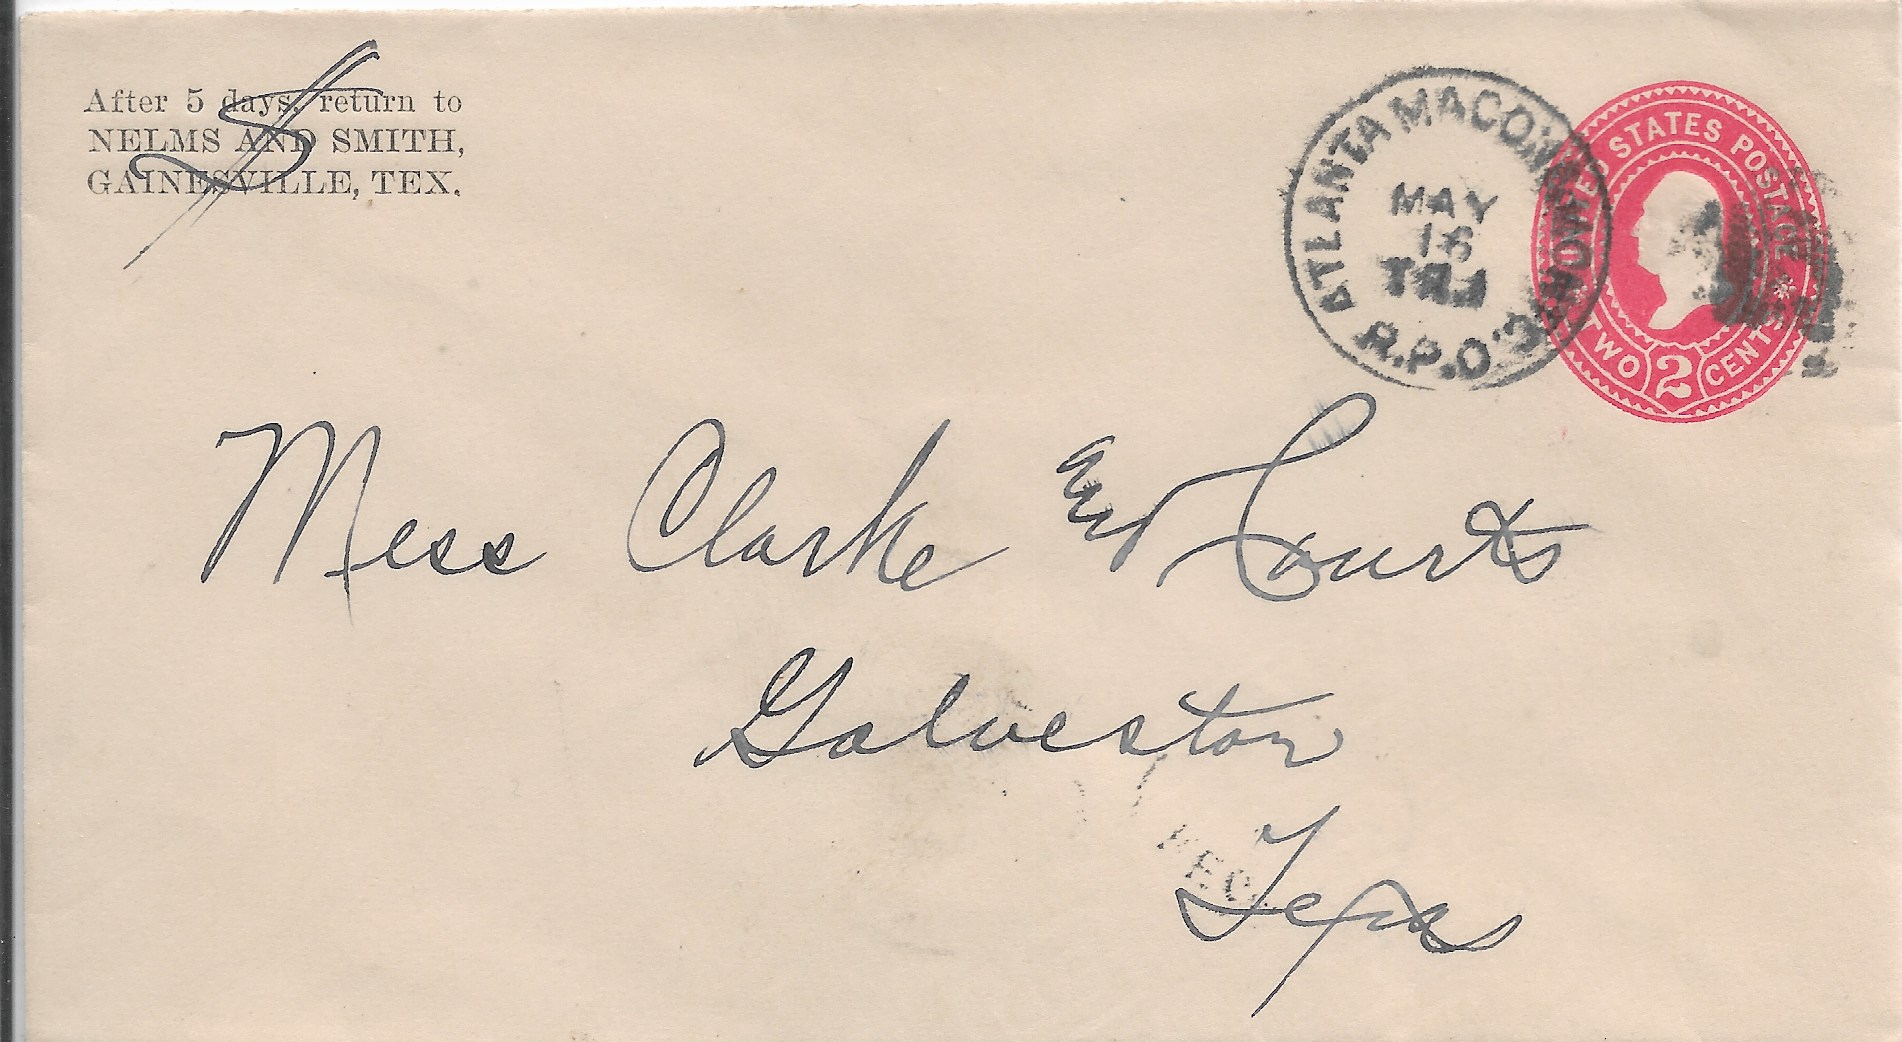 After 5 days, return to
NELMS AND SMITH,
GAINESVILLE, TEX.
ATLANTA MACON
MAY
16
R.P.O.
UNITED STATES POSTAGE
TWO 2 CENTS
Mess Clarke and Courts
Galveston
Texas
REC